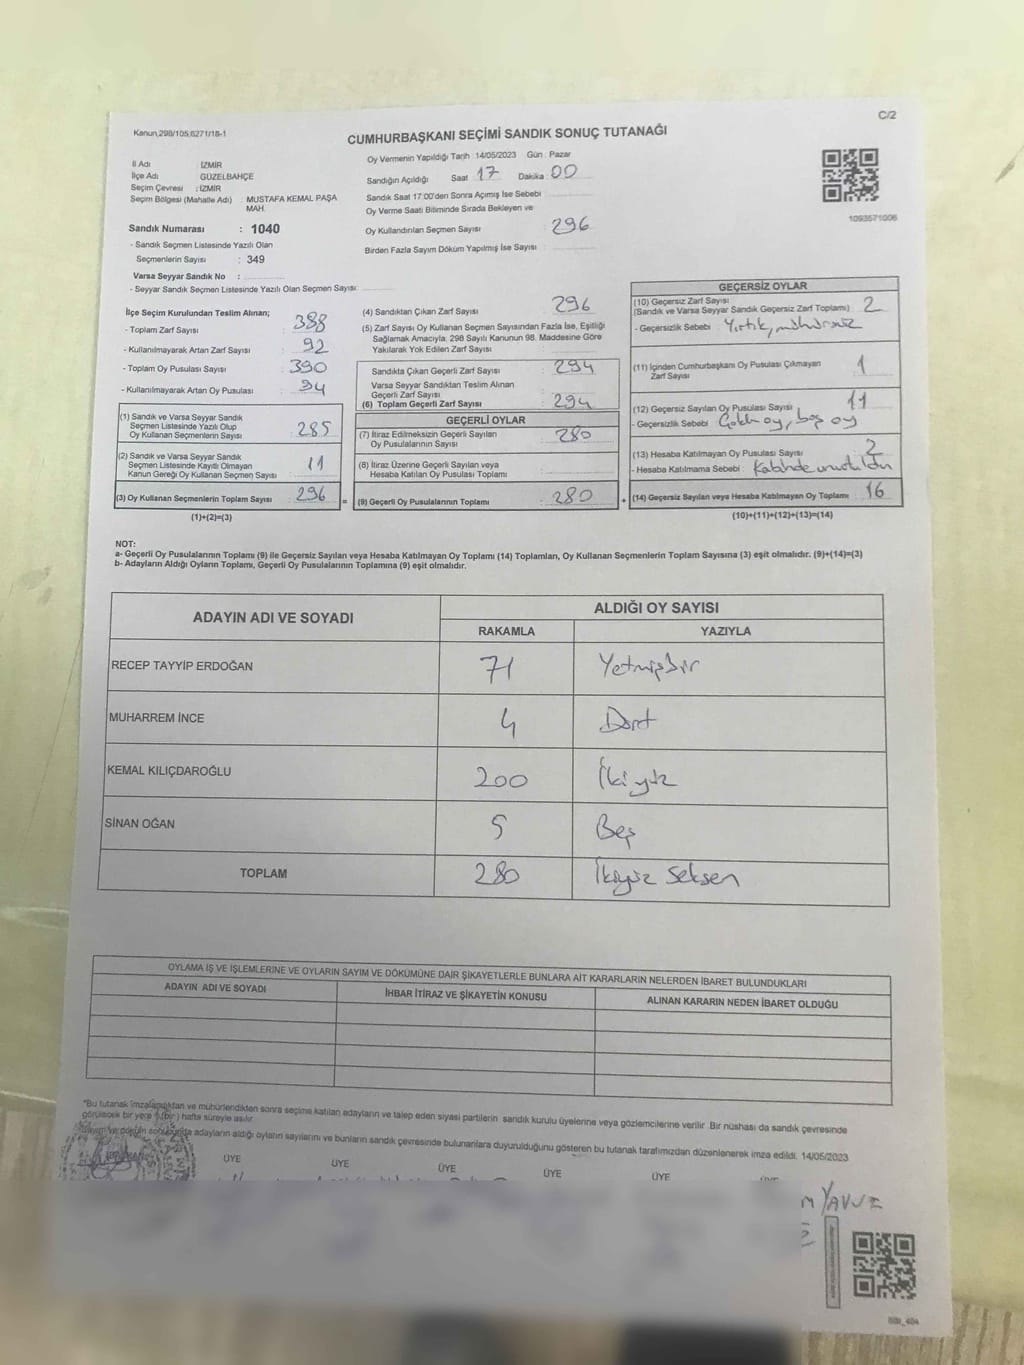 C/2
Kanun,298/105,6271/18-1
CUMHURBAŞKANI SEÇİMİ SANDIK SONUÇ TUTANAĞI
İl Adı İZMİR
İlçe Adı GÜZELBAHÇE
Seçim Çevresi : İZMİR
Seçim Bölgesi (Mahalle Adı) : MUSTAFA KEMAL PAŞA
MAH.
Sandık Numarası : 1040
- Sandık Seçmen Listesinde Yazılı Olan
Seçmenlerin Sayısı : 349
Varsa Seyyar Sandık No :
- Seyyar Sandık Seçmen Listesinde Yazılı Olan Seçmen Sayısı:
Oy Vermenin Yapıldığı Tarih : 14/05/2023 Gün : Pazar
Sandığın Açıldığı Saat 17 Dakika 00
Sandık Saat 17:00'den Sonra Açımış İse Sebebi
Oy Verme Saati Bitiminde Sırada Bekleyen ve
Oy Kullandırılan Seçmen Sayısı 296
Birden Fazla Sayım Döküm Yapılmış İse Sayısı :
1093571006
İlçe Seçim Kurulundan Teslim Alınan;
- Toplam Zarf Sayısı : 388
- Kullanılmayarak Artan Zarf Sayısı : 92
- Toplam Oy Pusulası Sayısı : 390
- Kullanılmayarak Artan Oy Pusulası : 94
(1) Sandık ve Varsa Seyyar Sandık
Seçmen Listesinde Yazılı Olup
Oy Kullanan Seçmenlerin Sayısı : 285
(2) Sandık ve Varsa Seyyar Sandık
Seçmen Listesinde Kayıtlı Olmayan
Kanun Gereği Oy Kullanan Seçmen Sayısı : 11
(3) Oy Kullanan Seçmenlerin Toplam Sayısı : 296
(1)+(2)=(3)
(4) Sandıktan Çıkan Zarf Sayısı : 296
(5) Zarf Sayısı Oy Kullanan Seçmen Sayısından Fazla İse, Eşitliği
Sağlamak Amacıyla; 298 Sayılı Kanunun 98. Maddesine Göre
Yakılarak Yok Edilen Zarf Sayısı :
Sandıkta Çıkan Geçerli Zarf Sayısı : 294
Varsa Seyyar Sandıktan Teslim Alınan
Geçerli Zarf Sayısı :
(6) Toplam Geçerli Zarf Sayısı : 294
GEÇERLİ OYLAR
(7) İtiraz Edilmeksizin Geçerli Sayılan
Oy Pusulalarının Sayısı : 280
(8) İtiraz Üzerine Geçerli Sayılan veya
Hesaba Katılan Oy Pusulası Toplamı :
= (9) Geçerli Oy Pusulalarının Toplamı : 280 +
GEÇERSİZ OYLAR
(10) Geçersiz Zarf Sayısı
(Sandık ve Varsa Seyyar Sandık Geçersiz Zarf Toplamı) : 2
- Geçersizlik Sebebi : Yırtık, mühürsüz
(11) İçinden Cumhurbaşkanı Oy Pusulası Çıkmayan
Zarf Sayısı : 1
(12) Geçersiz Sayılan Oy Pusulası Sayısı : 11
- Geçersizlik Sebebi : Çoklu oy, boş oy
(13) Hesaba Katılmayan Oy Pusulası Sayısı : 2
- Hesaba Katılmama Sebebi : Kabinde unutulan
(14) Geçersiz Sayılan veya Hesaba Katılmayan Oy Toplamı : 16
(10)+(11)+(12)+(13)=(14)
NOT:
a- Geçerli Oy Pusulalarının Toplamı (9) ile Geçersiz Sayılan veya Hesaba Katılmayan Oy Toplamı (14) Toplamları, Oy Kullanan Seçmenlerin Toplam Sayısına (3) eşit olmalıdır. (9)+(14)=(3)
b- Adayların Aldığı Oyların Toplamı, Geçerli Oy Pusulalarının Toplamına (9) eşit olmalıdır.
ADAYIN ADI VE SOYADI ALDIĞI OY SAYISI
RAKAMLA YAZIYLA
RECEP TAYYİP ERDOĞAN 71 Yetmişbir
MUHARREM İNCE 4 Dört
KEMAL KILIÇDAROĞLU 200 İkiyüz
SİNAN OĞAN 5 Beş
TOPLAM 280 İkiyüz Seksen
OYLAMA İŞ VE İŞLEMLERİNE VE OYLARIN SAYIM VE DÖKÜMÜNE DAİR ŞİKAYETLERLE BUNLARA AİT KARARLARIN NELERDEN İBARET BULUNDUKLARI
ADAYIN ADI VE SOYADI İHBAR İTİRAZ VE ŞİKAYETİN KONUSU ALINAN KARARIN NEDEN İBARET OLDUĞU
*Bu tutanak imzalandıktan ve mühürlendikten sonra seçime katılan adayların ve talep eden siyasi partilerin sandık kurulu üyelerine veya gözlemcilerine verilir .Bir nüshası da sandık çevresinde
görülecek bir yere 1 (bir ) hafta süreyle asılır.
adayların aldığı oyların sayılarını ve bunların sandık çevresinde bulunanlara duyurulduğunu gösteren bu tutanak tarafımızdan düzenlenerek imza edildi. 14/05/2023
ÜYE ÜYE ÜYE ÜYE ÜYE
YAVUZ